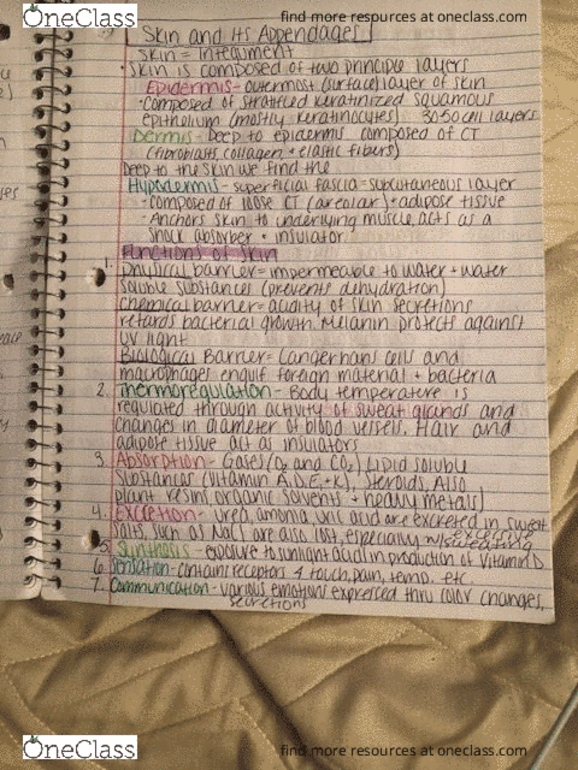 OneClass
find more resources at oneclass.com
Skin and Its Appendages
Skin = Integument
• Skin is composed of two principle layers
Epidermis - outermost (surface) layer of skin
• composed of stratified keratinized squamous
epithelium (mostly keratinocytes) 30-50 cell layers
Dermis - Deep to epidermis composed of CT
(fibroblasts, collagen, + elastic fibers)
Deep to the skin we find the
Hypodermis - superficial fascia = subcutaneous layer
• composed of loose CT (areolar) • adipose tissue
• Anchors skin to underlying muscle, acts as a
shock absorber • insulator
Functions of Skin
1. physical barrier = impermeable to water + water
soluble substances (prevents dehydration)
chemical barrier = acidity of skin secretions
retards bacterial growth Melanin protects against
UV light
Biological Barrier = Langerhans cells and
macrophages engulf foreign material + bacteria
2. Thermoregulation - Body temperature is
regulated through activity of sweat glands and
changes in diameter of blood vessels. Hair and
adipose tissue act as insulators
3. Absorption - Gases (O2 and CO2) Lipid soluble
substances (vitamin A, D, E, + K), Steroids, Also
plant resins, organic solvents + heavy metals)
4. Excretion - urea, amonia, uric acid are excreted in sweat
salts, such as NaCl are also lost, especially w/ excessive
sweating
5. Synthesis - exposure to sunlight acid in production of Vitamin D
6. Sensation - contains receptors 4 touch, pain, temp. etc.
7. Communication - various emotions expressed thru color changes,
secretions
OneClass
find more resources at oneclass.com